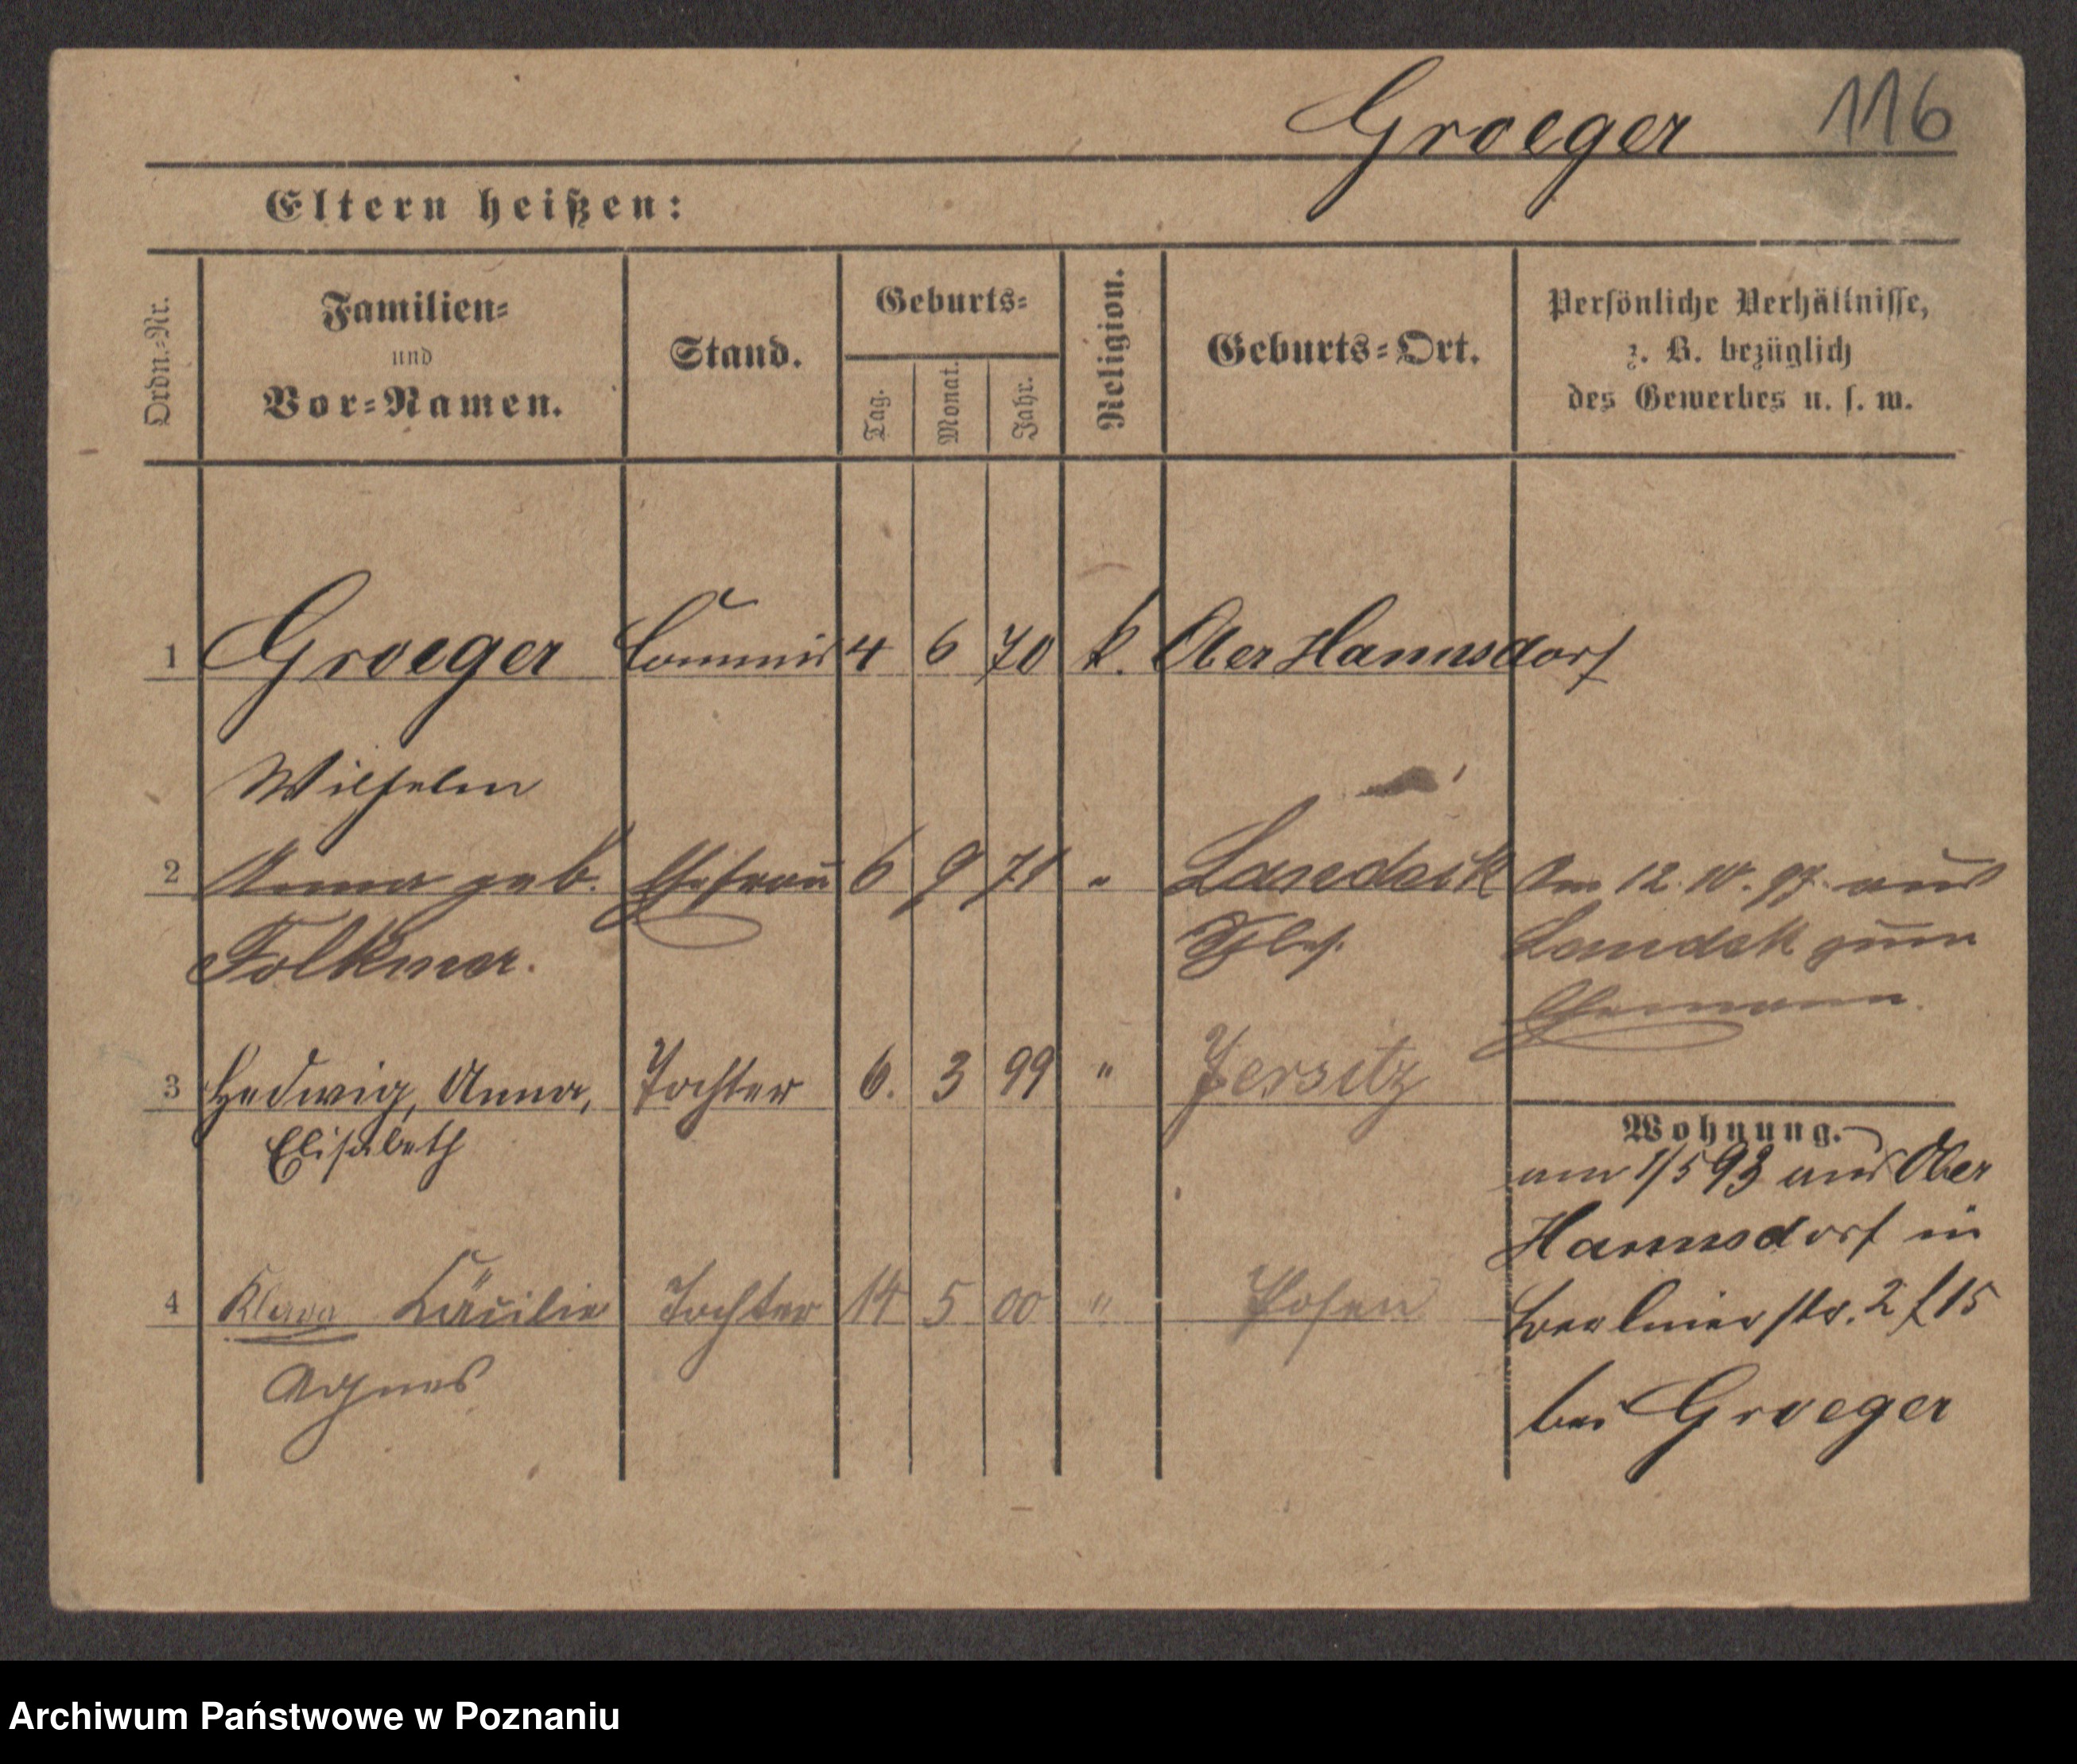 Groeger 116
Eltern heißen:
Ordn.-Nr.
Familien-
und
Vor-Namen.
Stand.
Geburts-
Tag.
Monat.
Jahr.
Religion.
Geburts-Ort.
Persönliche Verhältnisse,
z. B. bezüglich
des Gewerbes u. s. w.
1 Groeger Commis 4 6 70 k. Ober Hannsdorf
Wilhelm
2 Anna geb. Ehefrau 6 9 71 " Landeck Am 12.10.97. aus
Folkmer. Schles. Landek zum
Ehemann.
3 Hedwig, Anna, Tochter 6. 3 99 " Jersitz
Elisabeth
Wohnung.
am 1/5 93 aus Ober
Hannsdorf in
4 Klara Cäcilie Tochter 14 5 00 " Posen
Berlinerstr. 2 f 15
Agnes
bei Groeger
Archiwum Państwowe w Poznaniu